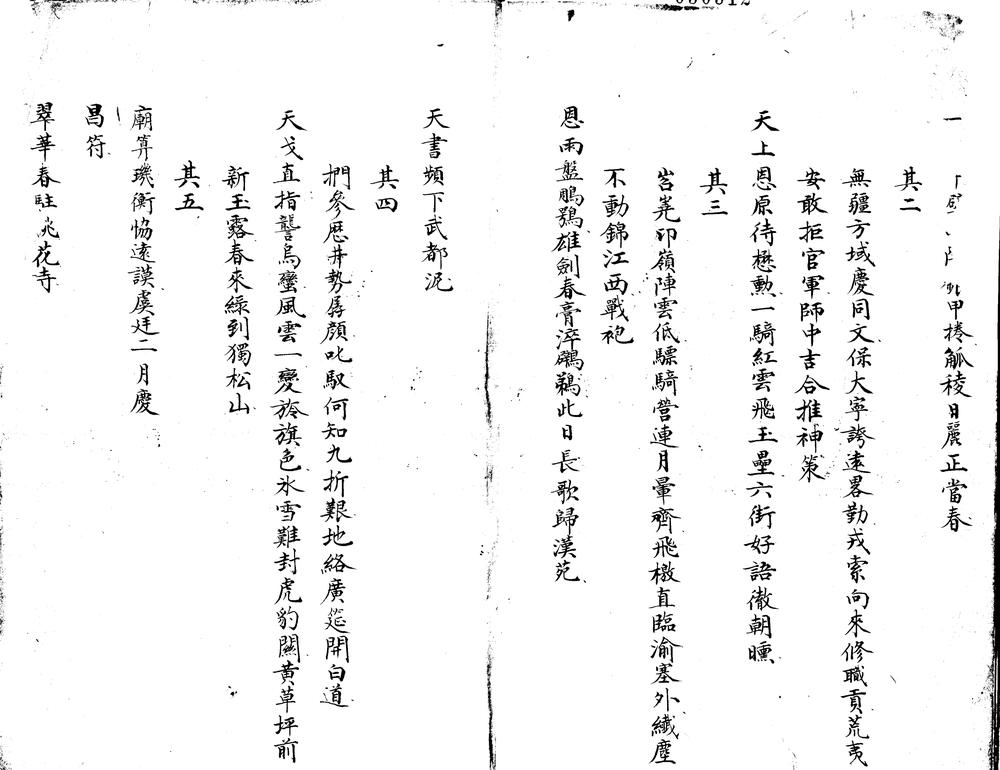 甲捲觚稜日麗正當春
其二
無疆方域慶同文保大寧誇遠畧勤戎索向來修職貢荒夷
安敢拒官軍師中吉合推神策
天上恩原待懋勲一騎紅雲飛玉壘六街好語徹朝曛
其三
岧嶤卭嶺陣雲低驃騎營連月暈齊飛檄直臨渝塞外纖塵
不動錦江西戰袍
恩雨盤鵰鶚雄劍春膏淬鸊鵜此日長歌歸漢苑
天書頻下武都泥
其四
捫參歷井勢孱顔叱馭何知九折艱地絡廣筵開白道
天戈直指讋烏蠻風雲一變旂旗色氷雪難封虎豹關黃草坪前
新玉露春來緑到獨松山
其五
廟筭璣衡恊遠謨虞廷二月慶
昌符
翠華春駐花寺